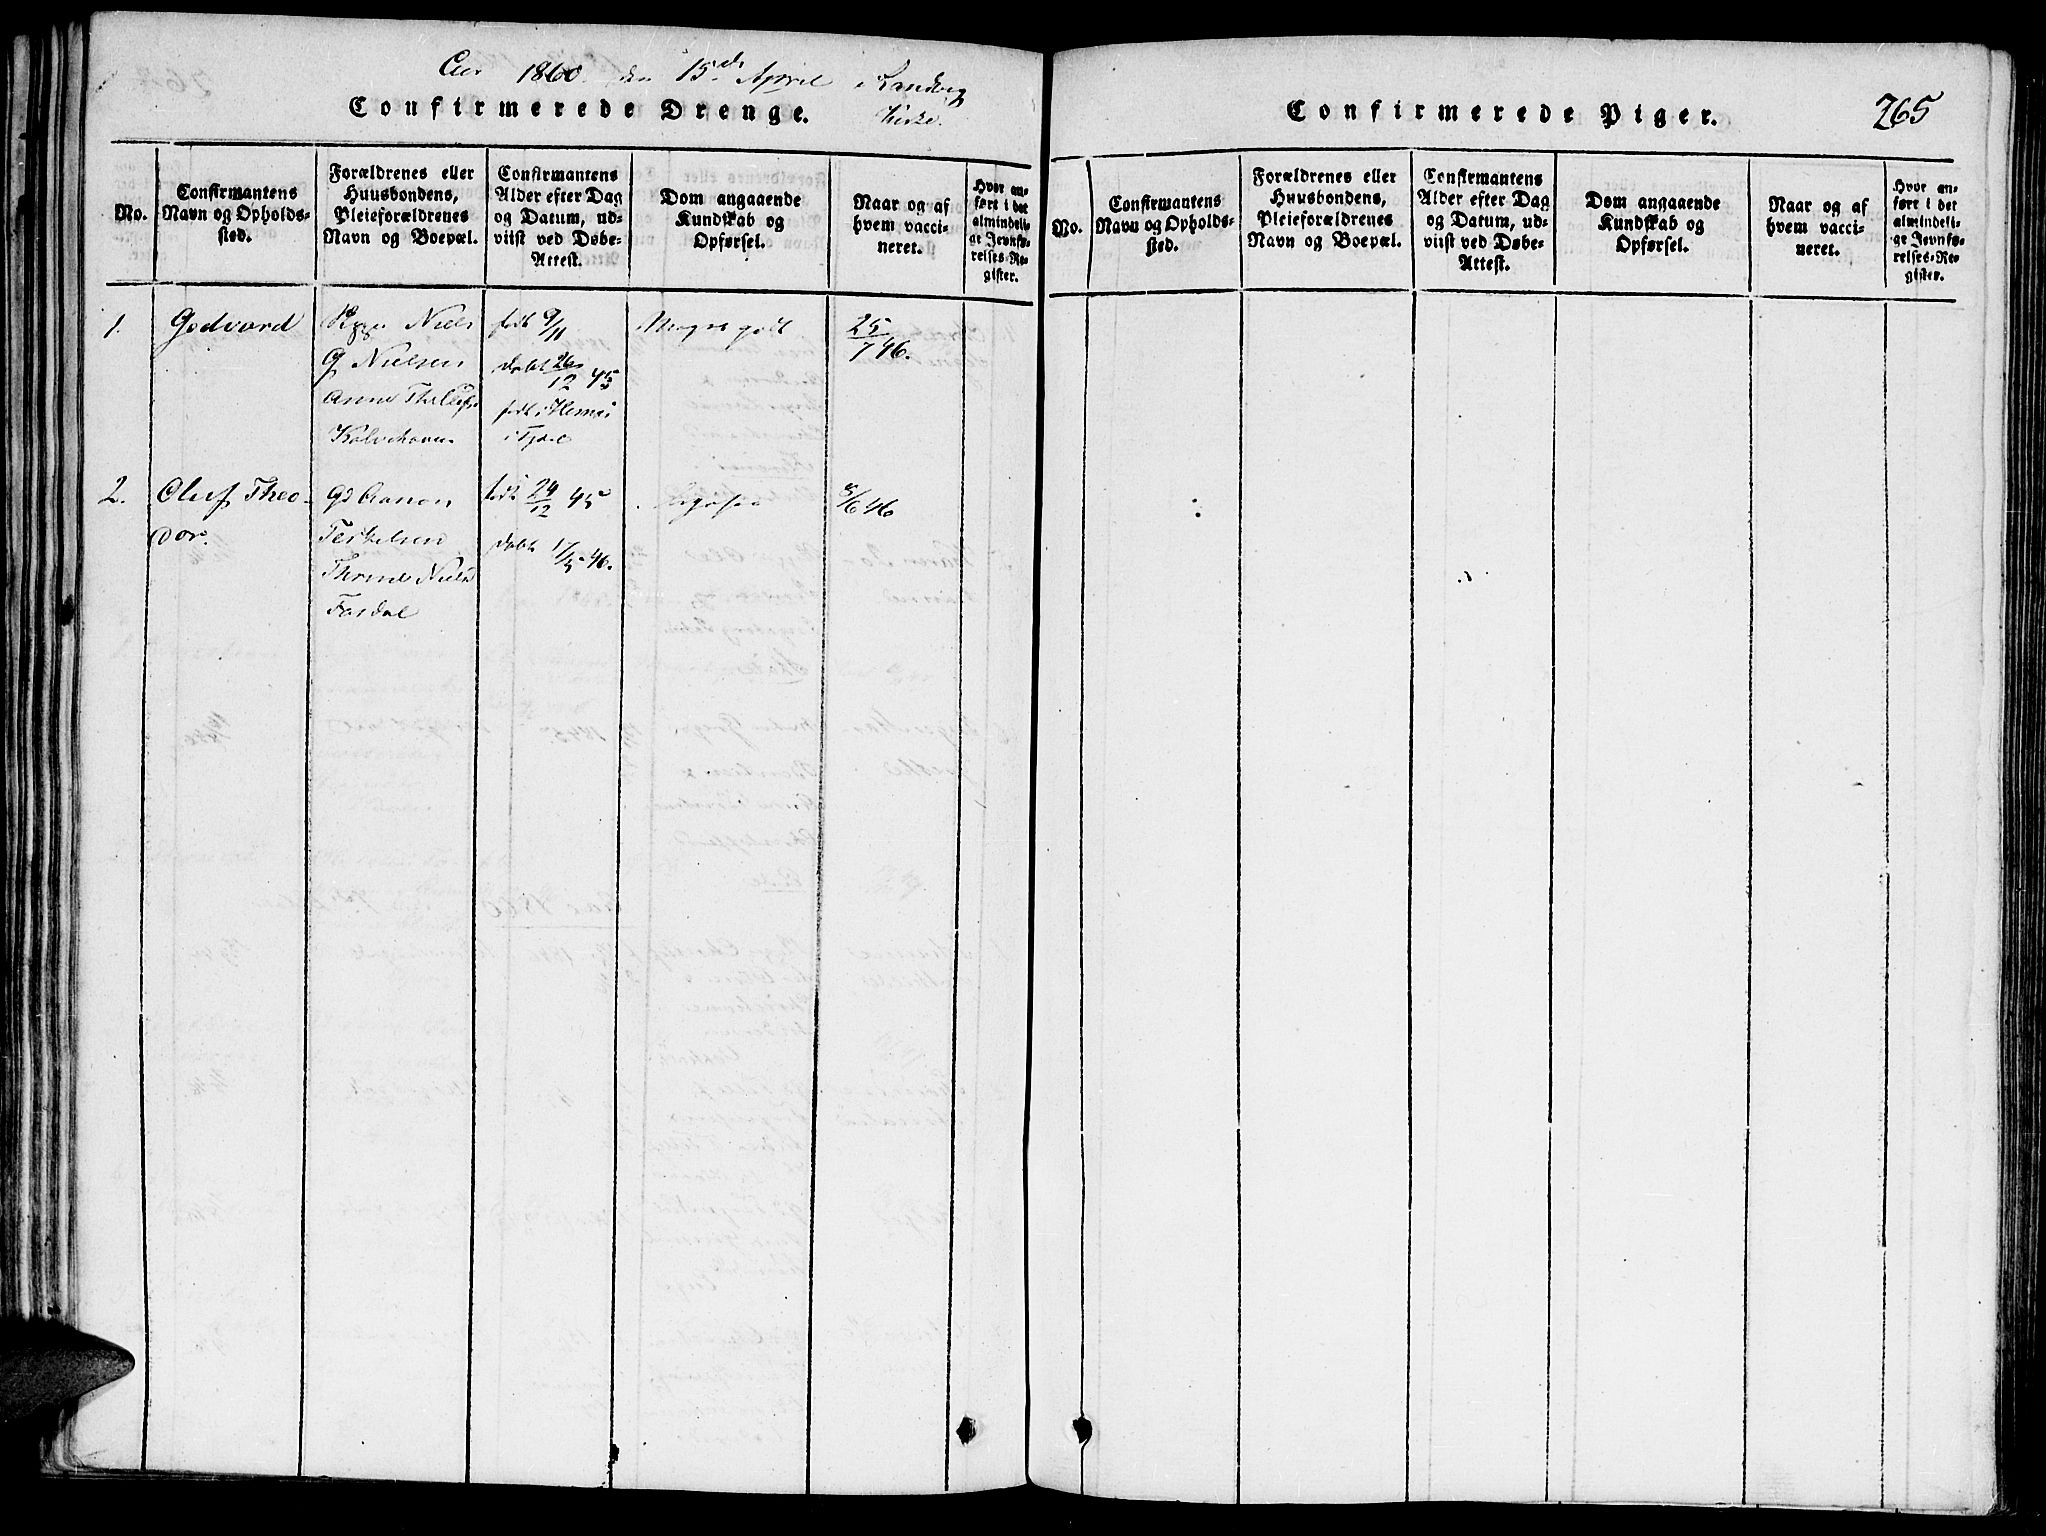 Aar 1860 den 15de April i Landvig
Kirke.
Confirmerede Drenge.
No.
Confirmantens
Navn og Opholds-
sted.
Forældrenes eller
Huusbondens,
Pleieforældrenes
Navn og Boepæl.
Confirmantens
Alder efter Dag
og Datum, ud-
viist ved Døbe-
Attest.
Dom angaaende
Kundskab og
Opførsel.
Naar og af
hvem vacci-
neret.
Hvor an-
ført i det
almindeli-
ge Jevnfø-
relses-Re-
gister.
1.
Godvard
Niels
G Nielsen
Anne
Kalvehaven
født 9/11
døbt 26/12 45
født i
Meget godt
25/7 46.
2.
Oluf Theo-
dor.
Gd Aanon
Terkelsen
Nielsd
Fosdal
født 24/12 45
døbt 17/5 46.
ligesaa
8/6 46
Confirmerede Piger.
265
No.
Confirmantens
Navn og Opholds-
sted.
Forældrenes eller
Huusbondens,
Pleieforældrenes
Navn og Boepæl.
Confirmantens
Alder efter Dag
og Datum, ud-
viist ved Døbe-
Attest.
Dom angaaende
Kundskab og
Opførsel.
Naar og af
hvem vacci-
neret.
Hvor an-
ført i det
almindeli-
ge Jevnfø-
relses-Re-
gister.